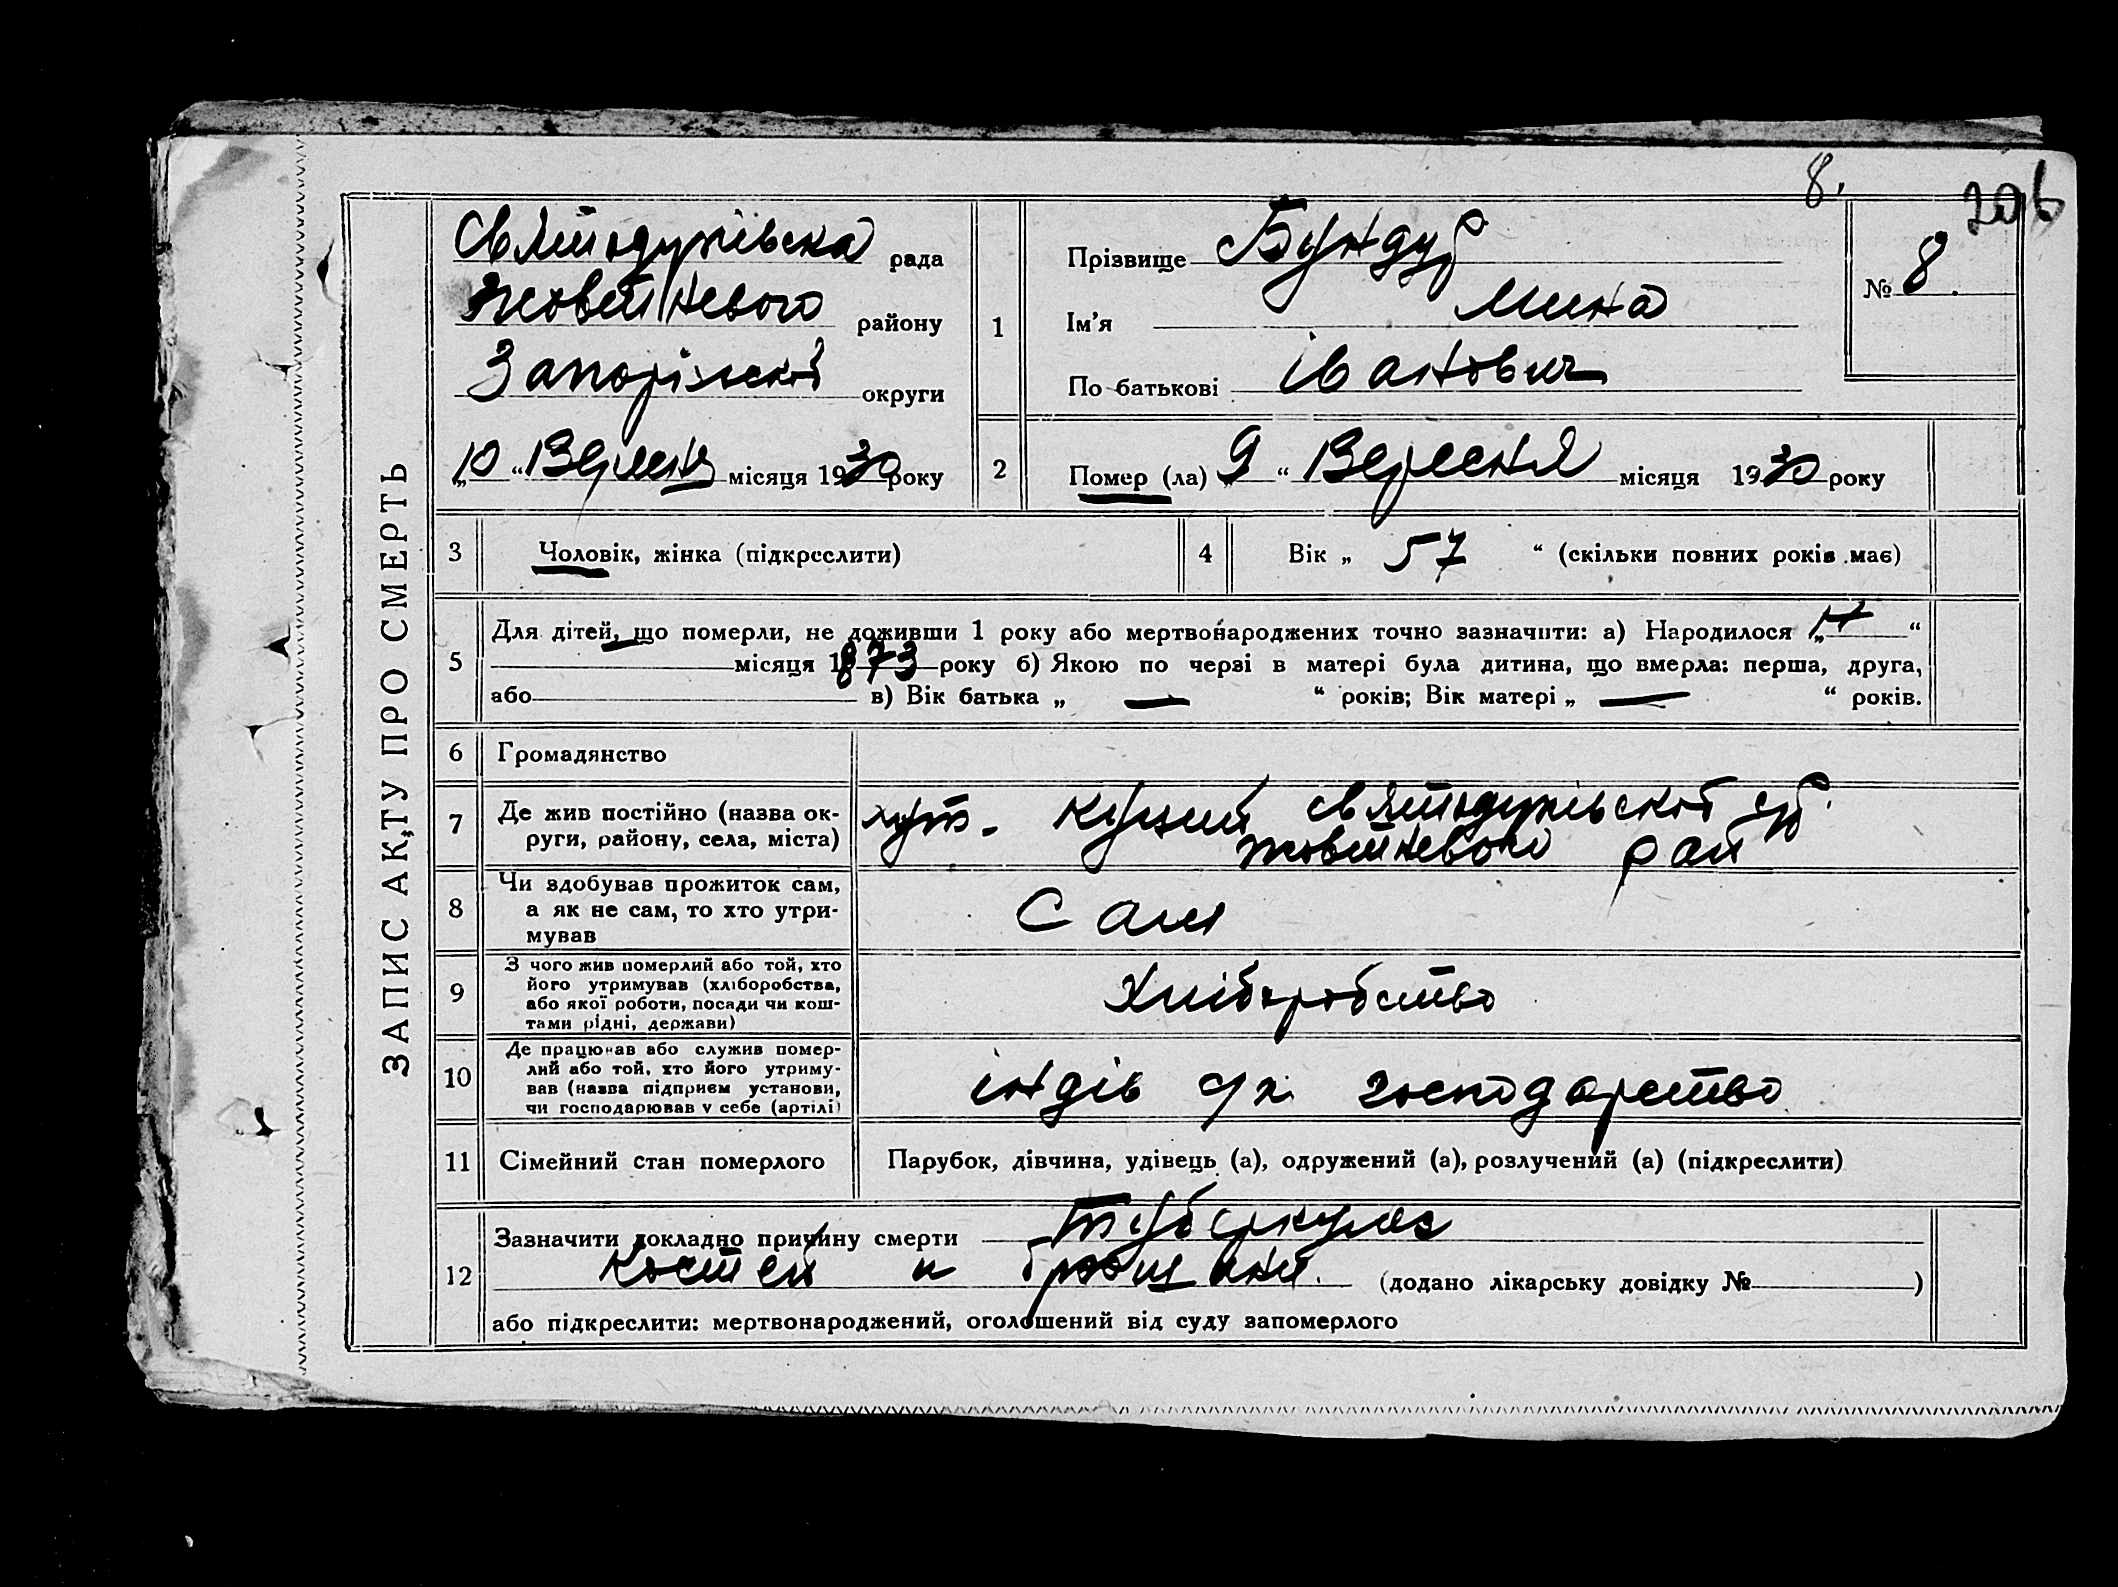 8.
206
ЗАПИС АКТУ ПРО СМЕРТЬ
Святодухівська рада
Жовтневого району
Запорізької округи
„10 “ Вересня місяця 1930 року
1
Прізвище Бундур
Ім’я Мина
По батькові Іванович
№ 8.
2
Помер (ла) „ 9 “ Вересня місяця 1930 року
3
Чоловік, жінка (підкреслити)
4
Вік „ 57 “ (скільки повних років має)
5
Для дітей, що померли, не доживши 1 року або мертвонароджених точно зазначити: а) Народилося „ “
місяця 1873 року б) Якою по черзі в матері була дитина, що вмерла: перша, друга,
або в) Вік батька „ — “ років; Вік матері „ — “ років.
6
Громадянство
7
Де жив постійно (назва ок-
руги, району, села, міста)
хут. Святодухівської с/р.
Жовтневого рай
8
Чи здобував прожиток сам,
а як не сам, то хто утри-
мував
Сам
9
З чого жив померлий або той, хто
його утримував (хліборобства,
або якої роботи, посади чи кош-
тами рідні, держави)
Хліборобство
10
Де працював або служив помер-
лий або той, хто його утриму-
вав (назва підприєм установи,
чи господарював у себе (артілі)
індів с/х. господарство
11
Сімейний стан померлого
Парубок, дівчина, удівець (а), одружений (а), розлучений (а) (підкреслити)
12
Зазначити докладно причину смерти Туберкулез
костей и (додано лікарську довідку № )
або підкреслити: мертвонароджений, оголошений від суду запомерлого